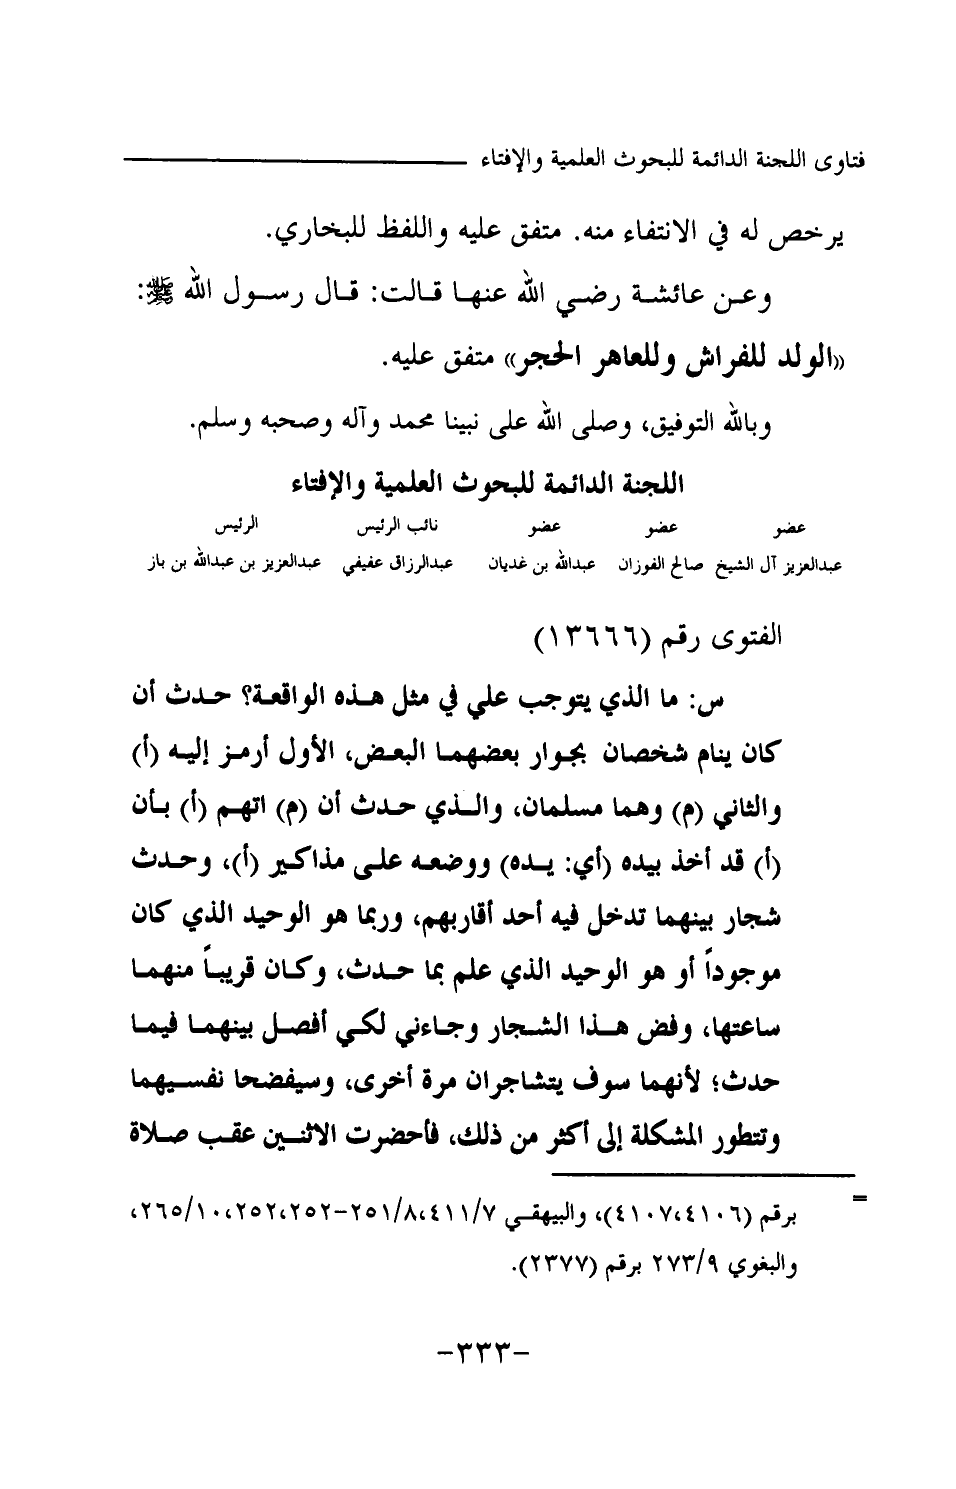 فتاوى اللجنة الدائمة للبحوث العلمية والإفتاء
يرخص له في الانتفاء منه. متفق عليه واللفظ للبخاري.
وعن عائشة رضي الله عنها قالت: قال رسول الله ﷺ:
«الولد للفراش وللعاهر الحجر» متفق عليه.
وبالله التوفيق، وصلى الله على نبينا محمد وآله وصحبه وسلم.
اللجنة الدائمة للبحوث العلمية والإفتاء
عضو عضو عضو نائب الرئيس الرئيس
عبدالعزيز آل الشيخ صالح الفوزان عبدالله بن غديان عبدالرزاق عفيفي عبدالعزيز بن عبدالله بن باز
الفتوى رقم (١٣٦٦٦)
س: ما الذي يتوجب علي في مثل هذه الواقعة؟ حدث أن
كان ينام شخصان بجوار بعضهما البعض، الأول أرمز إليه (أ)
والثاني (م) وهما مسلمان، والذي حدث أن (م) اتهم (أ) بأن
(أ) قد أخذ بيده (أي: يده) ووضعه على مذاكير (أ)، وحدث
شجار بينهما تدخل فيه أحد أقاربهم، وربما هو الوحيد الذي كان
موجوداً أو هو الوحيد الذي علم بما حدث، وكان قريباً منهما
ساعتها، وفض هذا الشجار وجاءني لكي أفصل بينهما فيما
حدث؛ لأنهما سوف يتشاجران مرة أخرى، وسيفضحا نفسيهما
وتتطور المشكلة إلى أكثر من ذلك، فأحضرت الاثنين عقب صلاة
= برقم (٤١٠٧،٤١٠٦)، والبيهقي ٤١١/٧، ٢٥١/٨-٢٥٢،٢٥٢، ٢٦٥/١٠،
والبغوي ٢٧٣/٩ برقم (٢٣٧٧).
-٣٣٣-